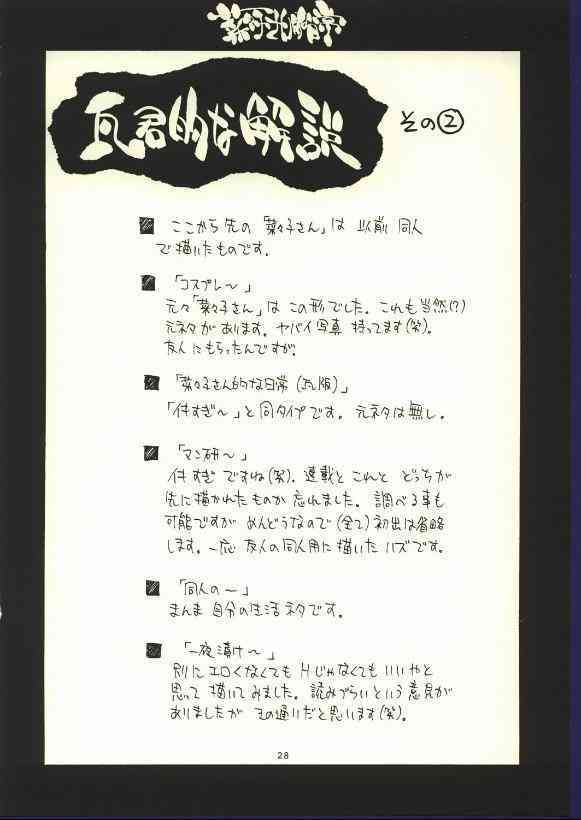 瓦君的な解説 その②
■ ここから先の「菜々子さん」は 以前 同人
で描いたものです。
■ 「コスプレ〜」
元々「菜々子さん」は この形でした。これも当然(!?)
元ネタがあります。ヤバイ写真 持ってます(笑)。
友人にもらったんですが。
■ 「菜々子さん的な日常(瓦版)」
「件すぎ〜」と同タイプです。元ネタは無し。
■ 「マン研〜」
件すぎ ですね(笑)。連載と これと どっちが
先に描かれたものか 忘れました。調べる事も
可能ですが めんどうなので(全て)初出は省略
します。一応 友人の同人用に描いた ハズです。
■ 「同人の〜」
まんま 自分の生活ネタです。
■ 「一夜漬け〜」
別に エロくなくても Hじゃなくても いいやと
思って 描いてみました。読みづらいという意見が
ありましたが その通りだと思います(笑)。
28